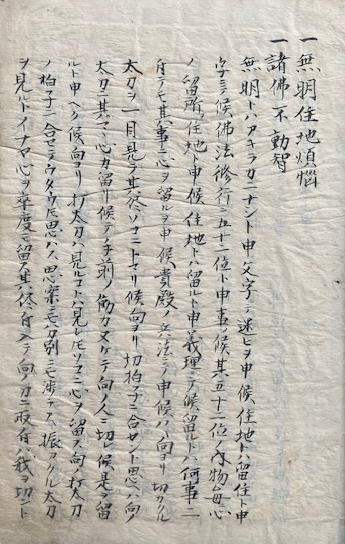 一 無明住地煩悩
一 諸佛不動智
無明トハアキラカニナシト申文字ニテ迷ヒヲ申候住地トハ留住ト申
字ニテ候佛法修行ニ五十二位ト申事ノ候其五十二位ノ内物毎心
ノ留所ヲ住地ト申候住地トハ留ルト申義理ニテ候留ルトハ何事ニ
付テモ其事ニ心ヲ留ルヲ申候貴殿ノ兵法ニテ申候ハ向ヨリ切カクル
太刀ヲ一目見テ其侭ソコニトマリ候向ヨリ切拍子ニ合セント思ヘハ向ノ
太刀ニ其マヽ心カ留リ候テ手前ノ働カヌケテ向ノ人ニ切レ候是ヲ留
ルト申ヘク候向ヨリ打太刀ハ見ルコトハ見レトモソコニ心ヲ留ス向ノ打太刀
ノ拍子ニ合セテウタウトモ思ハス思案ニモ分別ニモ渉ラス振アクル太刀
ヲ見ルトイナヤ心ヲ卒度モ留ス其侭付入テ向ノ刀ニ取付ハ我ヲ切ント